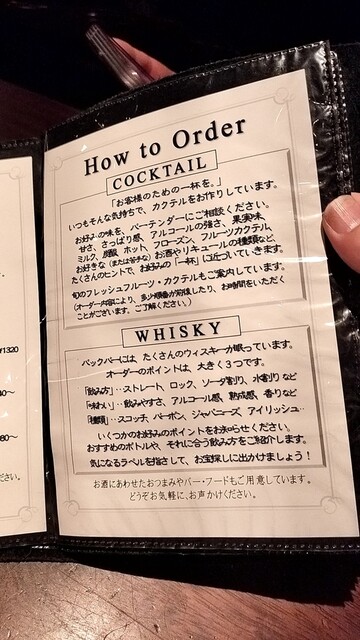 How to Order
COCKTAIL
「お客様のための一杯を。」
いつもそんな気持ちで、カクテルをお作りしています。
お好みの味を、バーテンダーにご相談ください。
甘さ、さっぱり感、アルコールの強さ、果実味、
ミルク、炭酸、ホット、フローズン、フルーツカクテル、
お好きな（または苦手な）お酒やリキュールの種類など、
たくさんのヒントで、お好みの「一杯」に近づいていきます。
旬のフレッシュフルーツ・カクテルもご案内しています。
（オーダー内容により、多少順番が前後したり、お時間をいただく
ことがございます。ご了承ください。）
WHISKY
バックバーには、たくさんのウィスキーが眠っています。
オーダーのポイントは、大きく３つです。
「飲み方」‥ストレート、ロック、ソーダ割り、水割り など
「味わい」‥飲みやすさ、アルコール感、熟成感、香りなど
「種類」‥スコッチ、バーボン、ジャパニーズ、アイリッシュ‥
いくつかのお好みのポイントをお知らせください。
おすすめのボトルや、それに合う飲み方をご紹介します。
気になるラベルを指さして、お宝探しに出かけましょう！
お酒にあわせたおつまみやバー・フードもご用意しています。
どうぞお気軽に、お声かけください。
f1320
40～
80～
ださい。